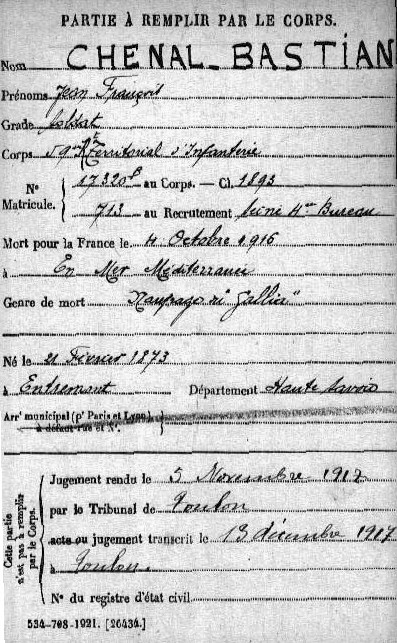 PARTIE À REMPLIR PAR LE CORPS.
Nom CHENAL-BASTIAN
Prénoms Jean François
Grade Soldat
Corps 59me Rt Territorial d'Infanterie
N° Matricule. 17320b au Corps. — Cl. 1893
713 au Recrutement Seine 4me Bureau
Mort pour la France le 4 Octobre 1916
à En Mer Méditerranée
Genre de mort Naufrage "Gallia"
Né le 21 Février 1873
à Entremont Département Haute Savoie
Arrt municipal (pr Paris et Lyon),
à défaut rue et N°.
Cette partie n'est pas à remplir par le Corps.
Jugement rendu le 5 Novembre 1917
par le Tribunal de Toulon
acte ou jugement transcrit le 13 décembre 1917
à Toulon.
N° du registre d'état civil
534-708-1921. [26434.]